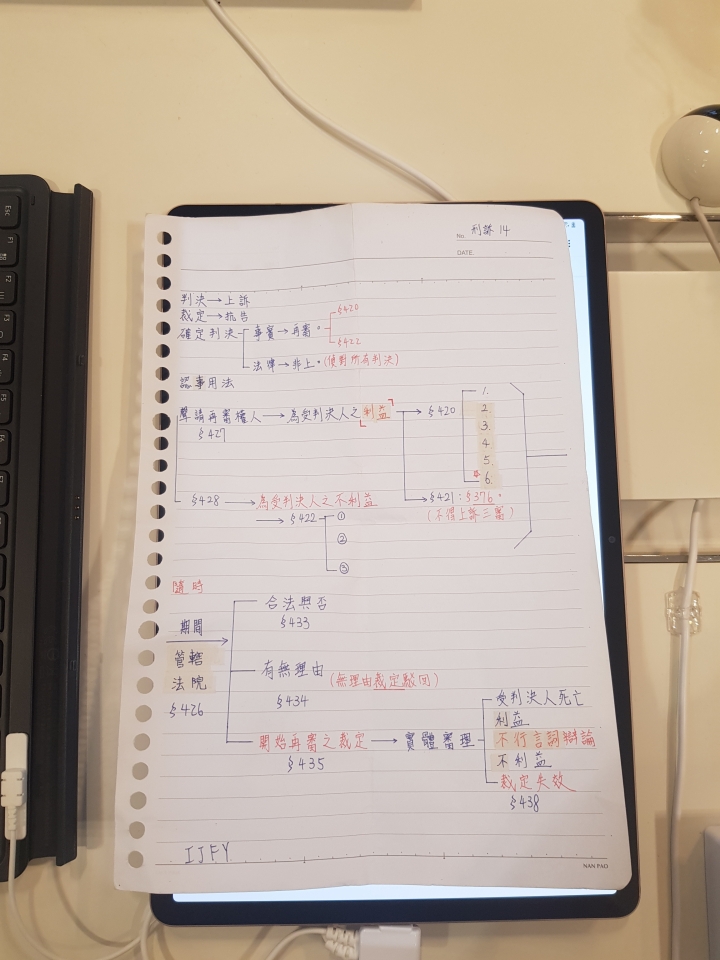 No. 刑訴 14
DATE:
判決→上訴
裁定→抗告
確定判決 事實→再審。 §420
§422
法律→非上。(須對所有判決)
認事用法
聲請再審權人→為受判決人之利益→§420
§427
1.
2.
3.
4.
5.
6.
§421:§376。
(不得上訴三審)
§428→為受判決人之不利益
→§422 ①
②
③
隨時
期間
管轄
法院
§426
合法與否
§433
有無理由(無理由裁定駁回)
§434
開始再審之裁定→實體審理
§435
受判決人死亡
利益
不行言詞辯論
不利益
裁定失效
§438
IJFY
NAN PAO
Esc
F1
F2
F3
F4
F5